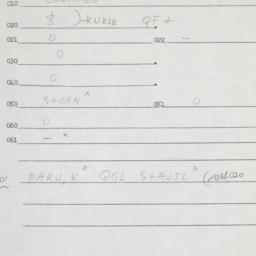 010
020 $ )-KUKLE QF+
021 0 022 —
030 0
040 0
050 S+ORN* 051 0
060 0
061 — *
PARU,K* QGL S+AJTL* (